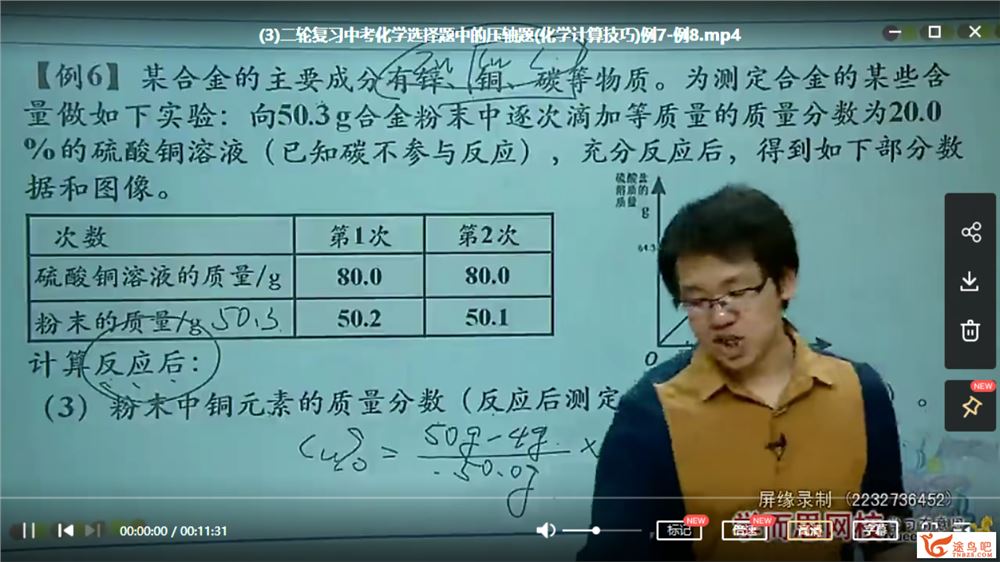 (3)二轮复习中考化学选择题中的压轴题(化学计算技巧)例7-例8.mp4
【例6】某合金的主要成分有锌、铜、碳等物质。为测定合金的某些含
量做如下实验：向50.3g合金粉末中逐次滴加等质量的质量分数为20.0
%的硫酸铜溶液（已知碳不参与反应），充分反应后，得到如下部分数
据和图像。
硫酸盐
溶质的
质量
g
64.3
O
次数 第1次 第2次
硫酸铜溶液的质量/g 80.0 80.0
粉末的质量/g 50.3 50.2 50.1
计算反应后：
（3）粉末中铜元素的质量分数（反应后测定
）。
Cu% = 50g-4g
50.0g
×
屏缘录制（2232736452）
学而思网校
00:00:00 / 00:11:31
标记
NEW
倍速
NEW
高清
字幕
NEW
NEW
途鸟吧
TNBZS.COM